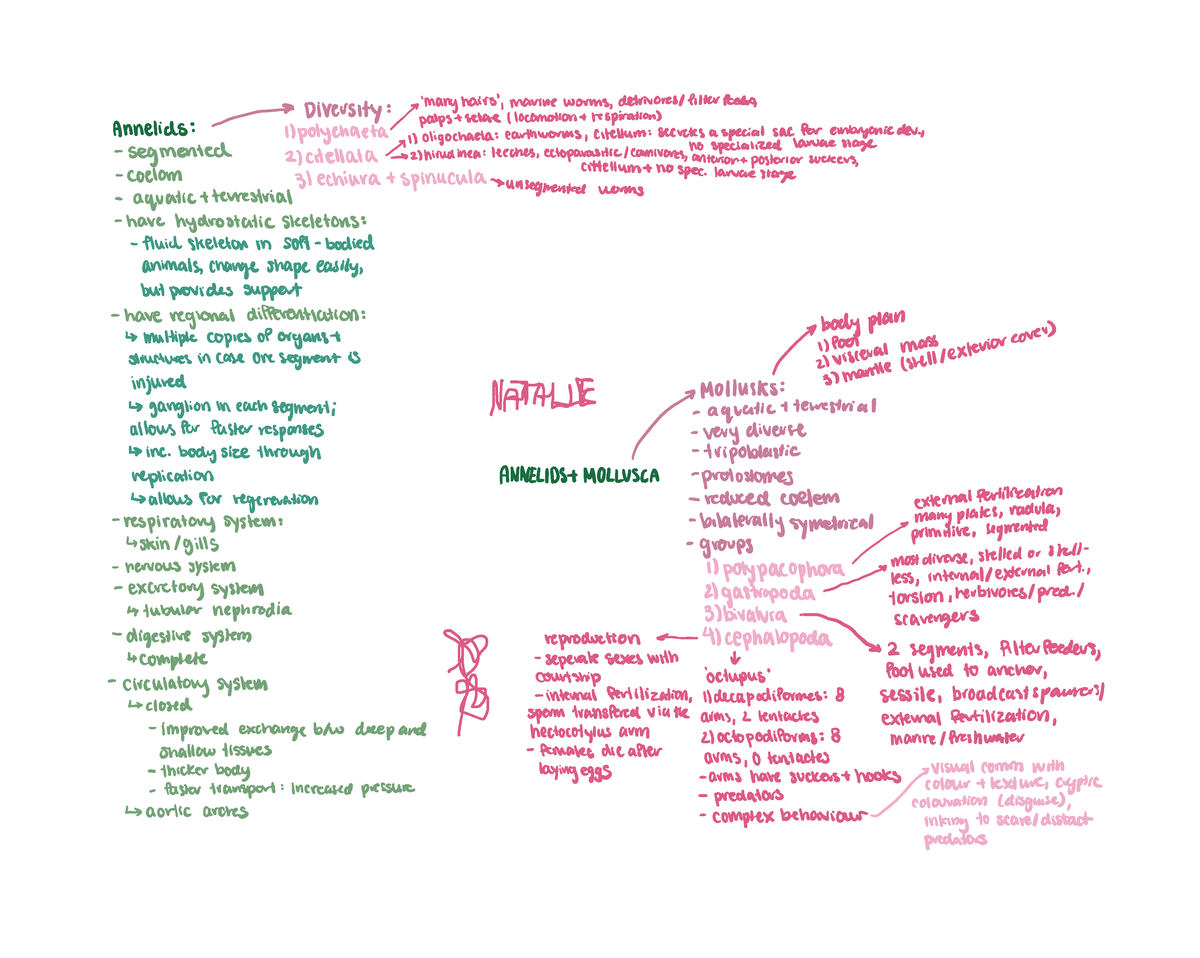 Annelids:
- segmented
- coelom
- aquatic + terrestrial
- have hydrostatic skeletons:
- fluid skeleton in soft-bodied
animals, change shape easily,
but provides support
- have regional differentiation:
↳ multiple copies of organs +
structures in case one segment is
injured
↳ ganglion in each segment;
allows for faster responses
↳ inc. body size through
replication
↳ allows for regeneration
- respiratory system:
↳ skin/gills
- nervous system
- excretory system
↳ tubular nephrodia
- digestive system
↳ complete
- circulatory system
↳ closed
- improved exchange b/w deep and
shallow tissues
- thicker body
- faster transport: increased pressure
↳ aortic arches
Diversity:
1) polychaeta
2) citellata
3) echiura + spinucula
'many hairs', marine worms, detrivores/filter feeders,
palps + setae (locomotion + respiration)
1) oligochaeta: earthworms, citellum: secretes a special sac for embryonic dev.,
no specialized larvae stage
2) hirudinea: leeches, ectoparasitic/carnivores, anterior + posterior suckers,
citellum + no spec. larvae stage
unsegmented worms
NATALIE
ANNELIDS + MOLLUSCA
Mollusks:
- aquatic + terrestrial
- very diverse
- tripoblastic
- protostomes
- reduced coelem
- bilaterally symetrical
- groups
1) polypacophora
2) gastropoda
3) bivalvra
4) cephalopoda
body plan
1) foot
2) visceral mass
3) mantle (shell/exterior cover)
external fertilization
many plates, radula,
primitive, segmented
most diverse, shelled or shell-
less, internal/external fert.,
torsion, herbivores/pred./
scavengers
2 segments, filter feeders,
foot used to anchor,
sessile, broadcast spawners/
external fertilization,
marine/freshwater
reproduction
- seperate sexes with
courtship
- internal fertilization,
sperm transfered via the
hectocotylus arm
- females die after
laying eggs
'octupus'
1) decapodiformes: 8
arms, 2 tentacles
2) octopodiforms: 8
arms, 0 tentacles
- arms have suckers + hooks
- predators
- complex behaviour
visual comm with
colour + texture, cryptic
colouration (disguise),
inking to scare/distract
predators